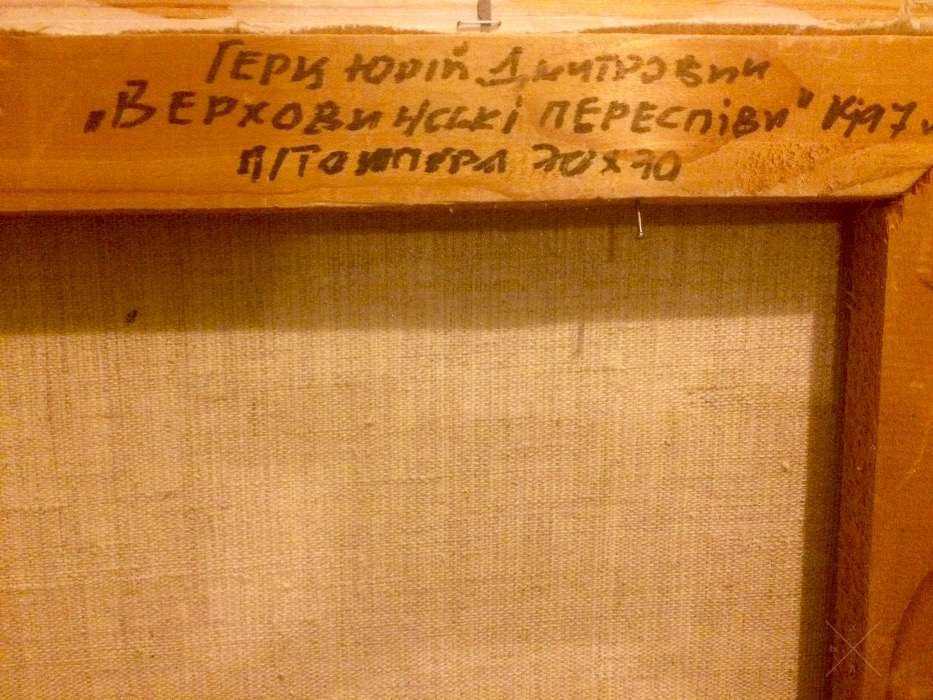 Герц Юрій Дмитрович
„Верховинські переспіви" 1997
п/темпера 70х70